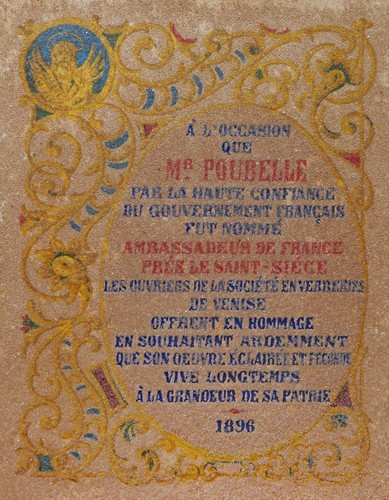 À L'OCCASION
QUE
MR POUBELLE
PAR LA HAUTE CONFIANCE
DU GOUVERNEMENT FRANÇAIS
FUT NOMMÉ
AMBASSADEUR DE FRANCE
PRÉS LE SAINT-SIÉGE
LES OUVRIERS DE LA SOCIÉTÉ EN VERRERIES
DE VENISE
OFFRENT EN HOMMAGE
EN SOUHAITANT ARDEMMENT
QUE SON OEUVRE ECLAIRÉE ET FECONDE
VIVE LONGTEMPS
À LA GRANDEUR DE SA PATRIE
1896